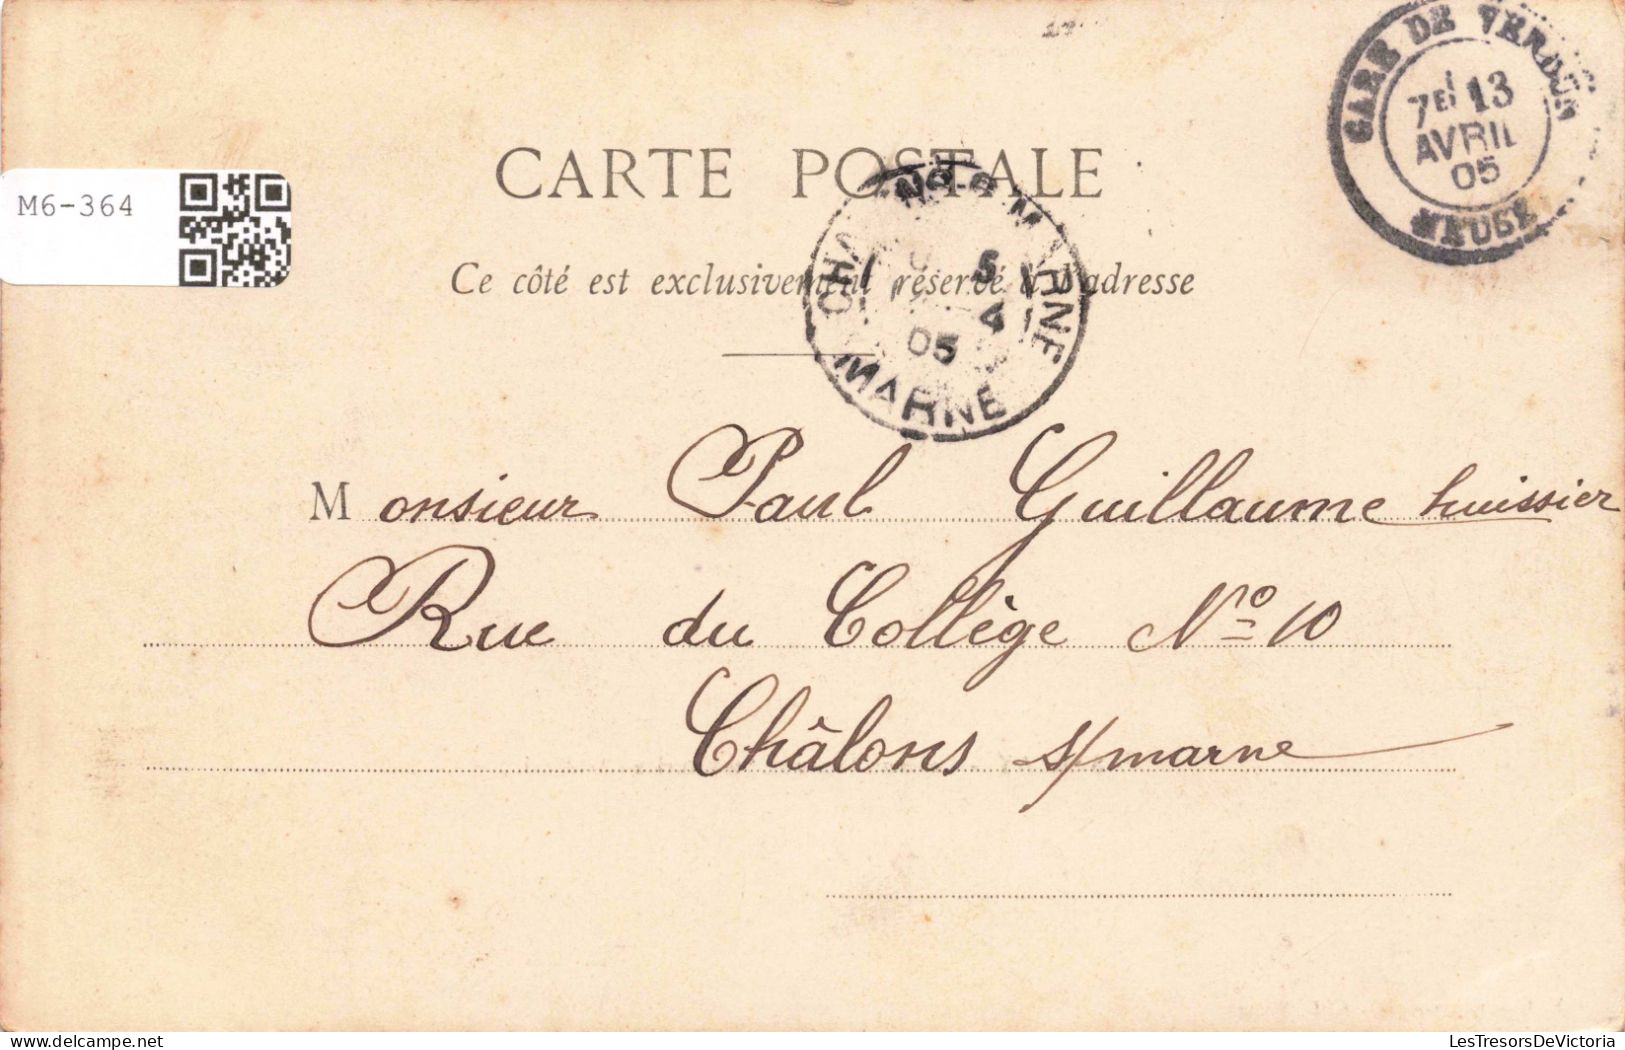 GARE DE VERDUN
7E 13
AVRIL
05
MEUSE
CARTE POSTALE
M6-364
5
4
05
MARNE
Ce côté est exclusivement réservé à l'adresse
Monsieur Paul Guillaume huissier
Rue du Collège No 10
Châlons s/marne
LesTresorsDeVictoria
delcampe.net